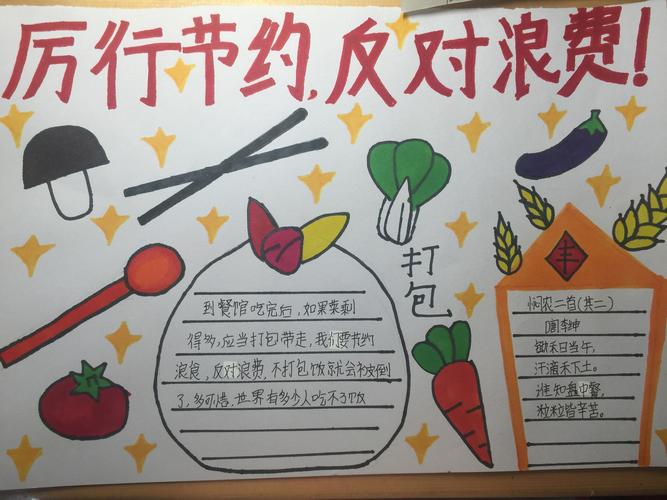 厉行节约,反对浪费!
打
包
到餐馆吃完后,如果菜剩
得多,应当打包带走,我们要节约
浪食,反对浪费,不打包饭就会被倒
了,多可惜,世界有多少人吃不了饭
丰
悯农二首(其二)
李绅
锄禾日当午,
汗滴禾下土。
谁知盘中餐,
粒粒皆辛苦。